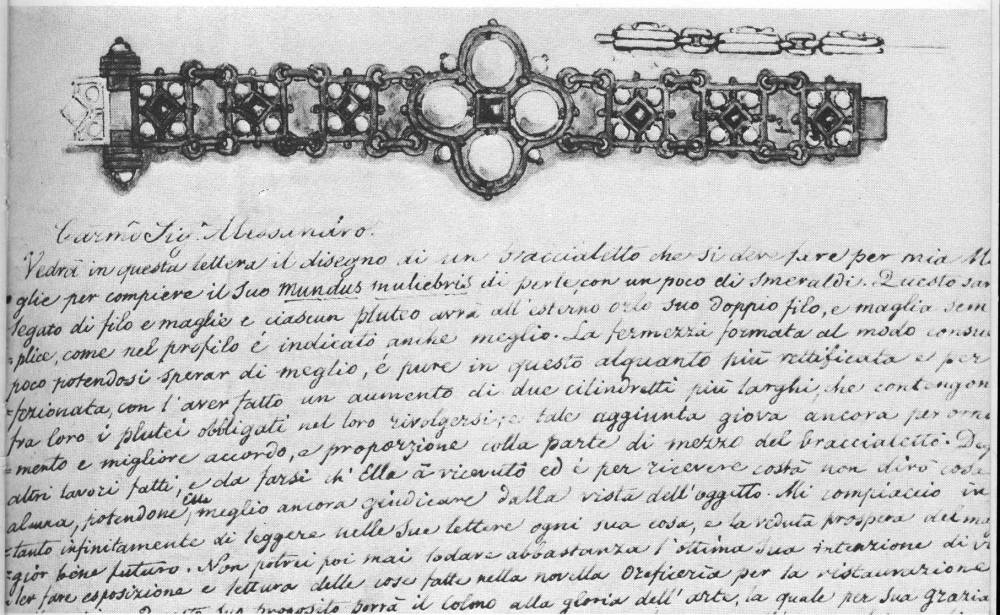 Carmo Sigr. Alessandro.
Vedrà in questa lettera il disegno di un braccialetto che si deve fare per mia Mo
glie per compiere il suo mundus muliebris di perle con un poco di smeraldi. Questo sarà
legato di filo e maglie e ciascun pluteo avrà all'esterno orlo suo doppio filo, e maglia sem
=plice, come nel profilo è indicato anche meglio. La fermezza formata al modo consue
poco potendosi sperar di meglio, é pure in questo alquanto più rettificata e per
=fezionata, con l'aver fatto un aumento di due cilindretti più larghi, che contengon
fra loro i plutei obbligati nel loro rivolgersi, e tale aggiunta giova ancora per orna
=mento e migliore accordo, e proporzione colla parte di mezzo del braccialetto. Degl
altri lavori fatti, e da farsi ch'Ella à ricevuto ed è per ricevere costà non dirò cosa
alcuna, potendone Ella meglio ancora giudicare dalla vista dell'oggetto. Mi compiaccio in
=tanto infinitamente di leggere nelle sue lettere ogni sua cosa, e la veduta prospera del mag
=gior bene futuro. Non potrei poi mai lodare abbastanza l'ottima sua intenzione di vo
ler fare esposizione e lettura delle cose fatte nella novella Oreficeria per la ristaurazione
Questo suo proposito porrà il colmo alla gloria dell'arte, la quale per sua grazia